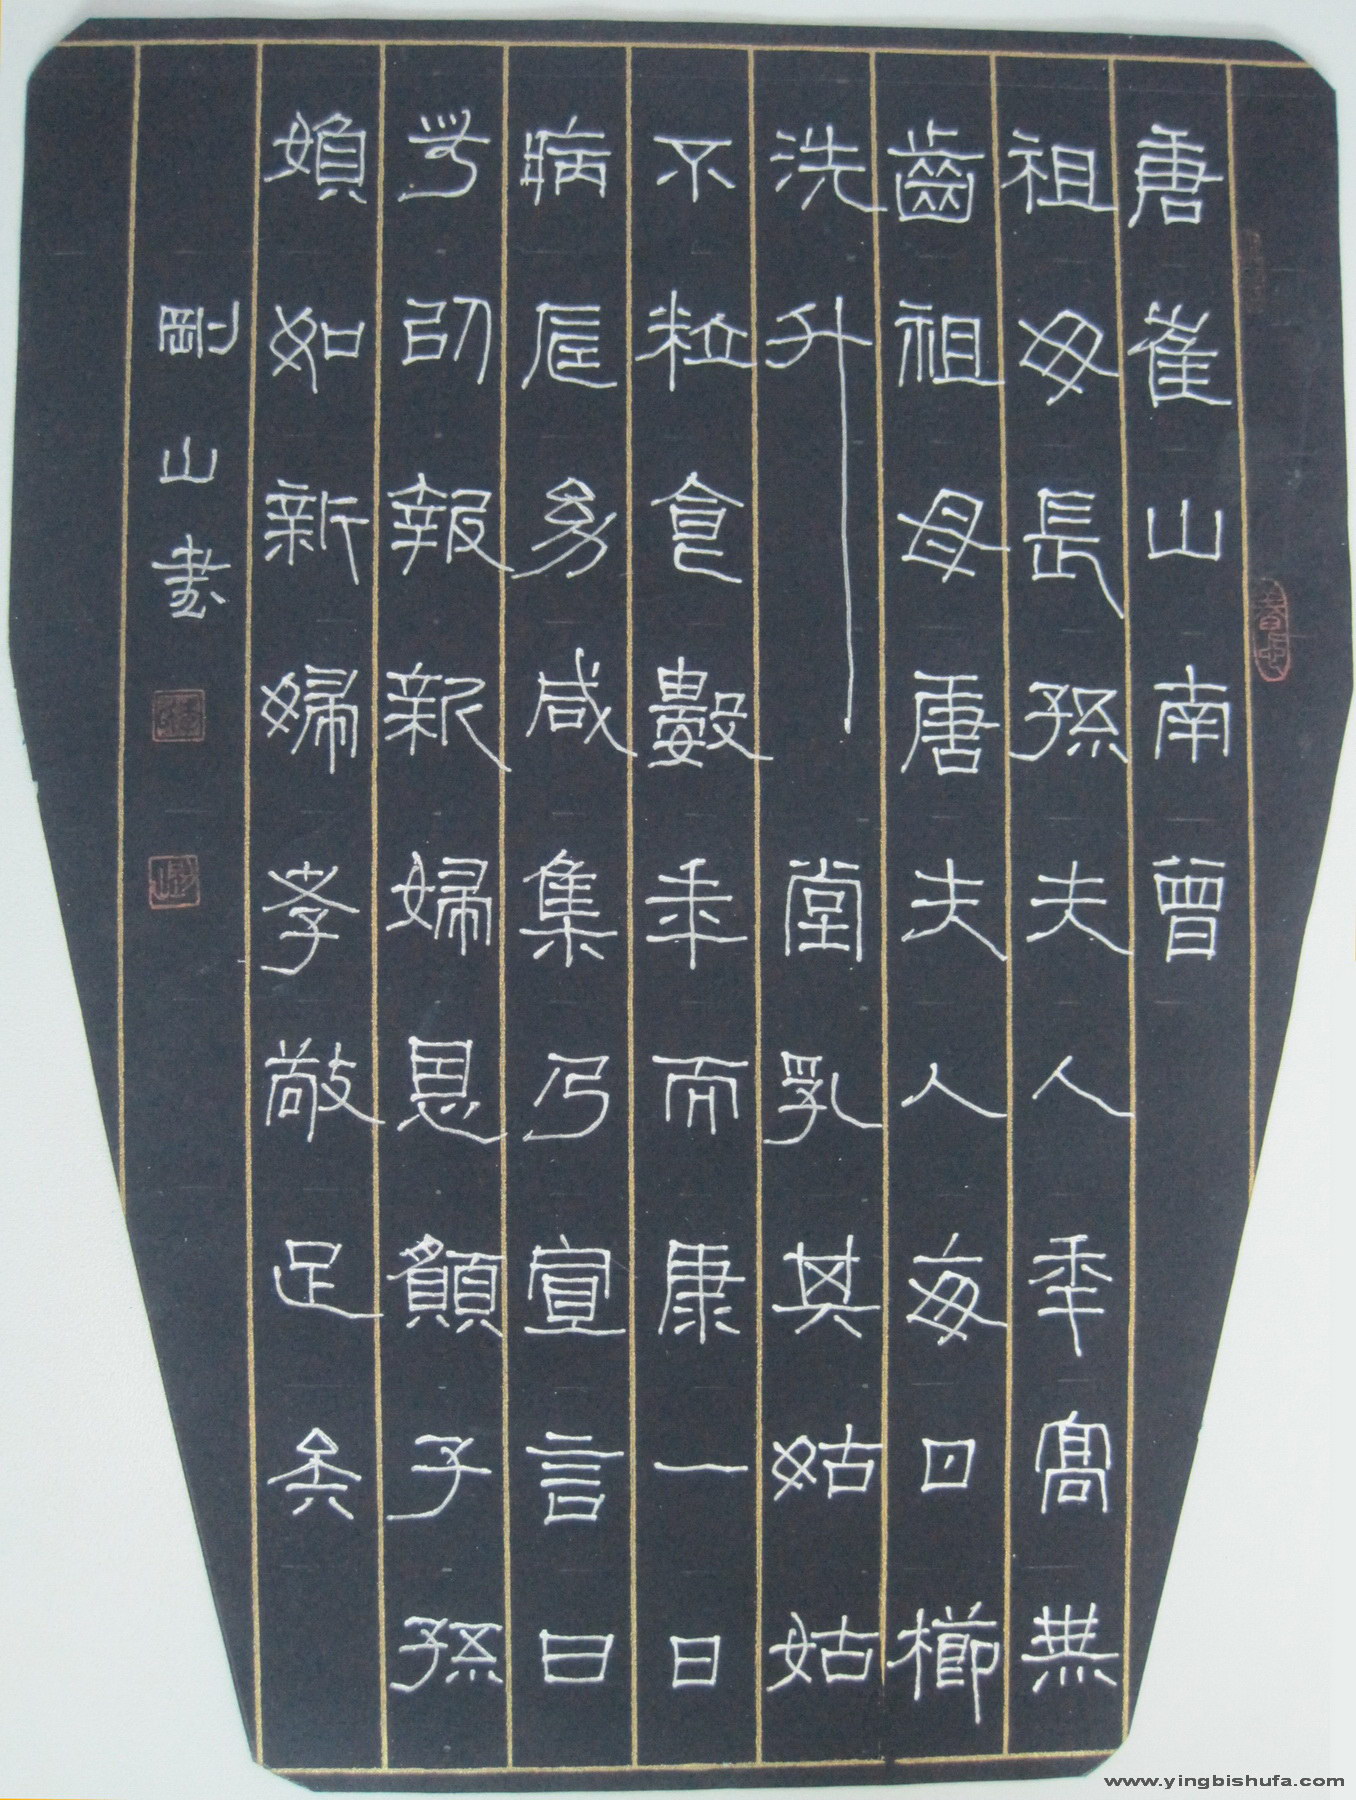 唐崔山南曾
祖母長孫夫人年高無
齒祖母唐夫人每日櫛
洗升堂乳其姑姑
不粒食數年而康一日
病長幼咸集乃宣言曰
無以報新婦恩願子孫
媍如新婦孝敬足矣
剛山書
www.yingbishufa.com